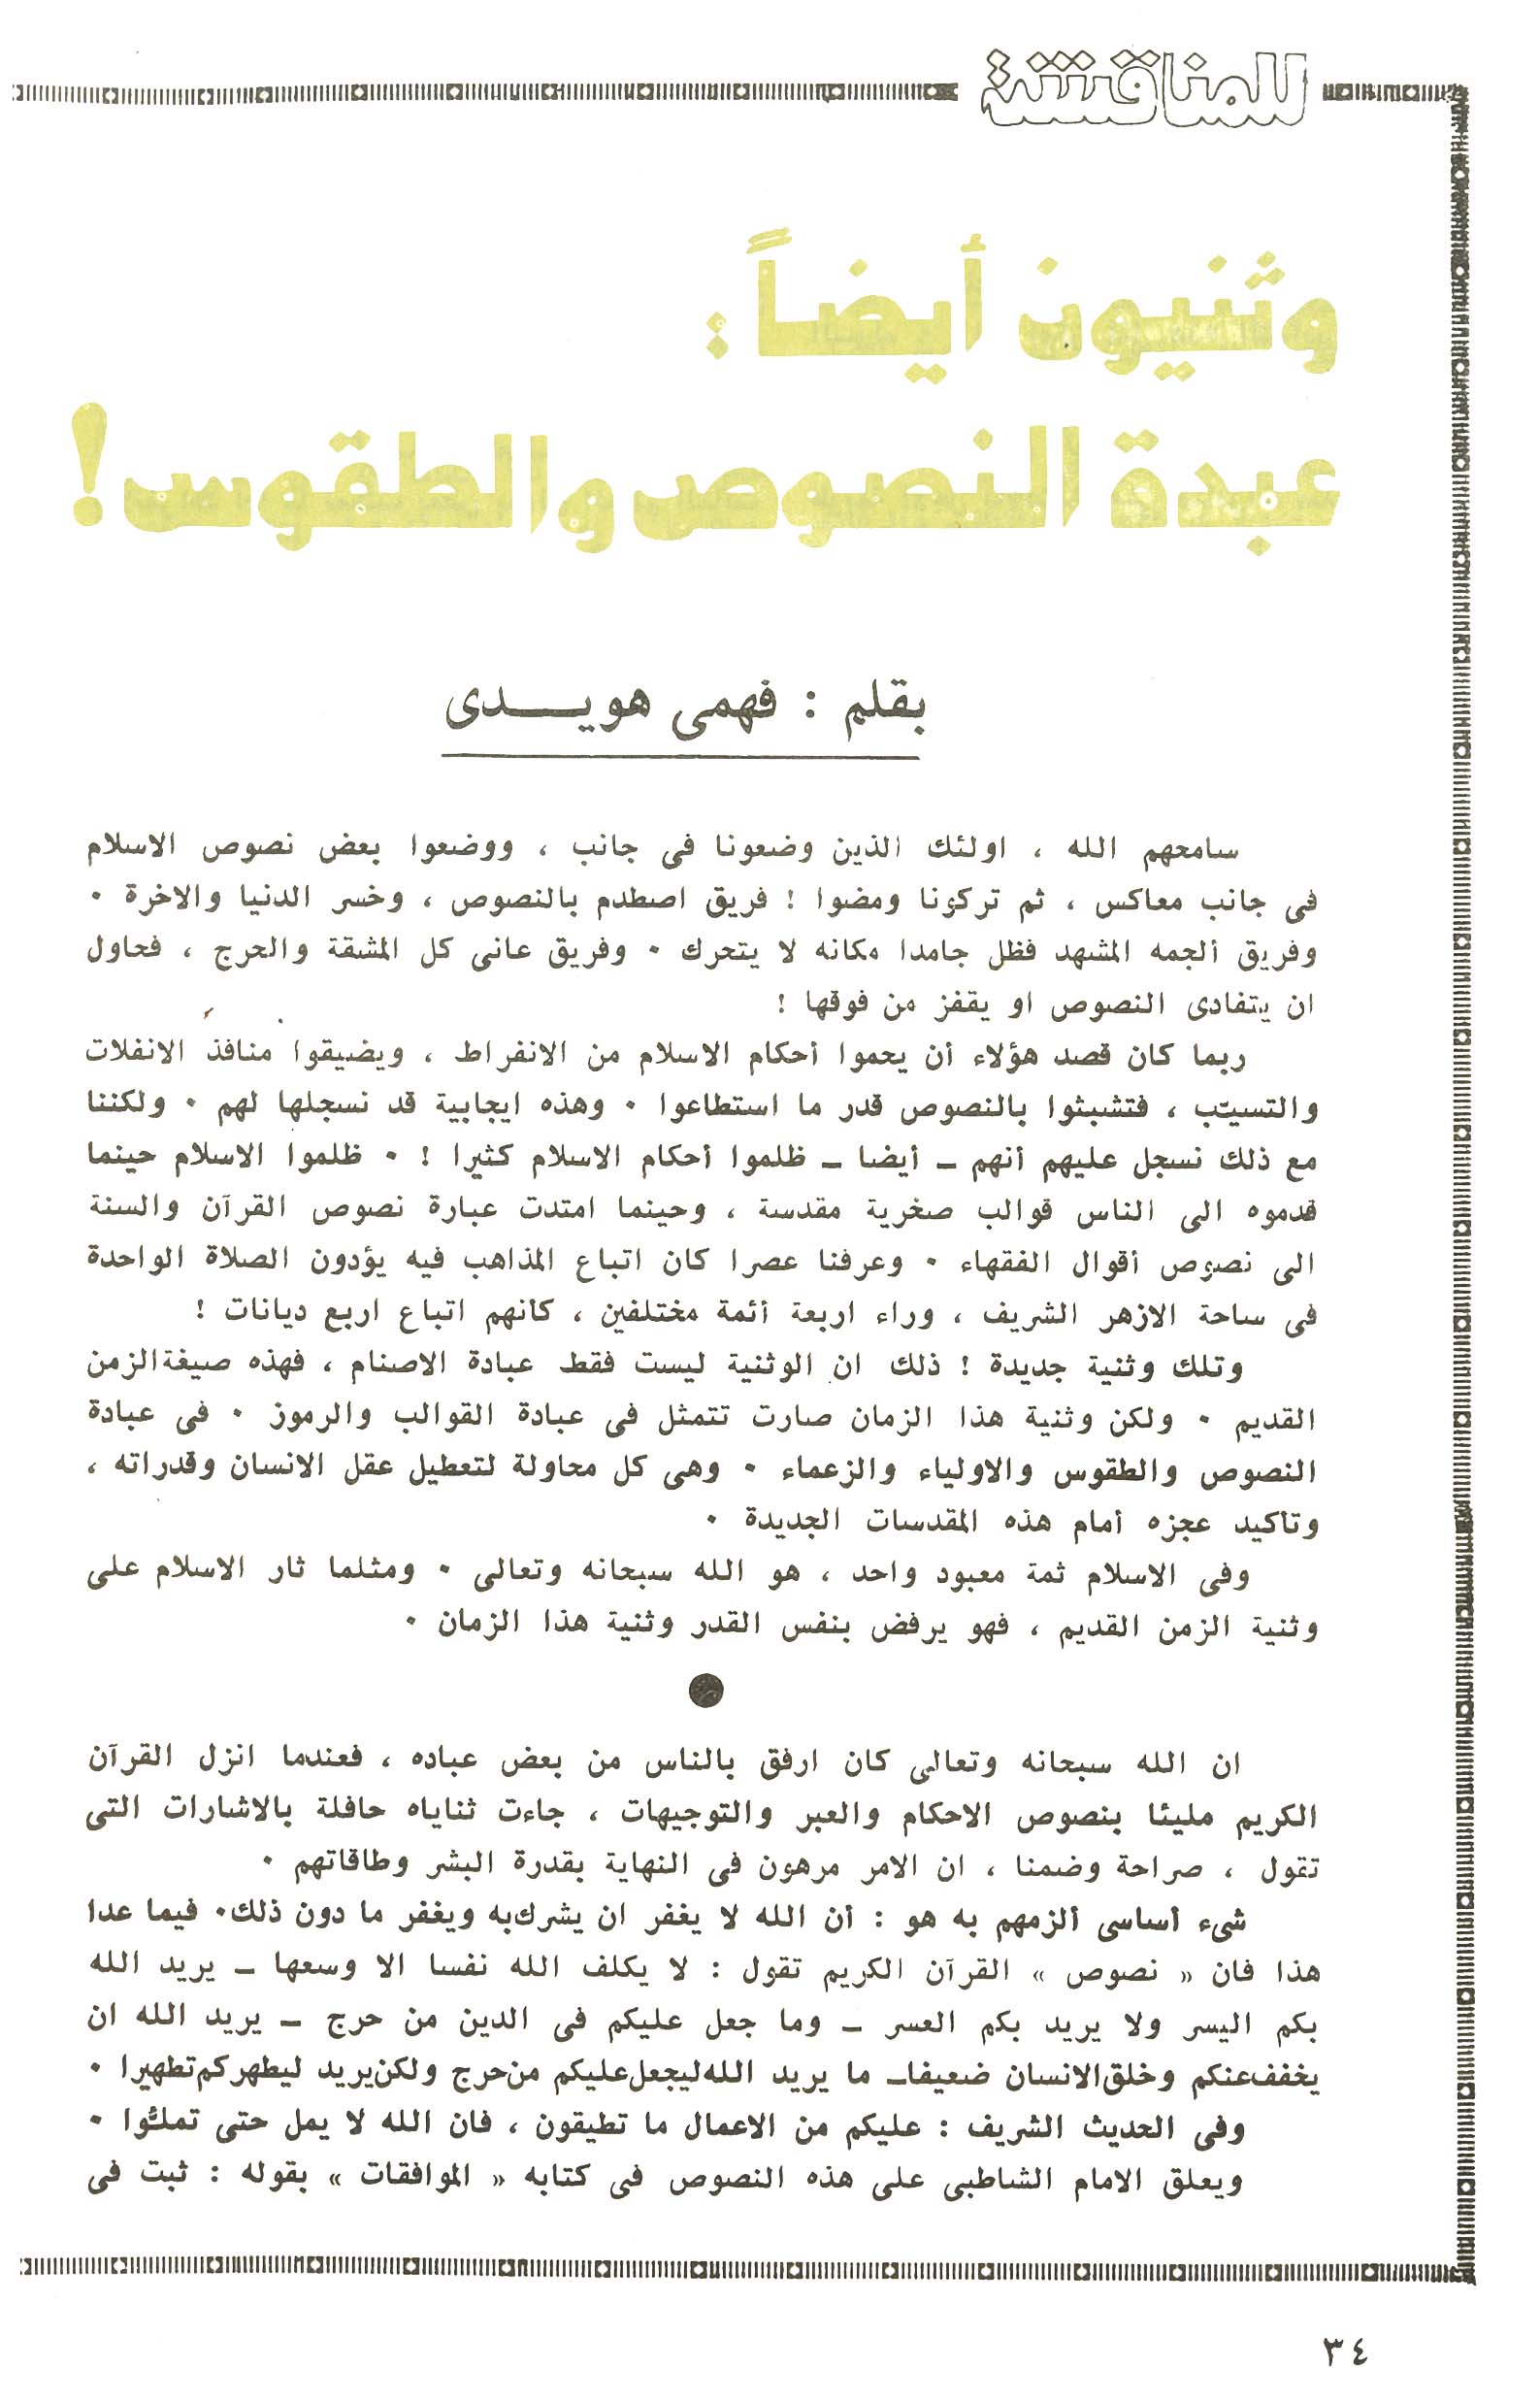 للمناقشة
وثنيون أيضاً :
عبدة النصوص والطقوس !
بقلم : فهمى هويـــدى
سامحهم الله ، اولئك الذين وضعونا فى جانب ، ووضعوا بعض نصوص الاسلام
فى جانب معاكس ، ثم تركونا ومضوا ! فريق اصطدم بالنصوص ، وخسر الدنيا والاخرة ٠
وفريق ألجمه المشهد فظل جامدا مكانه لا يتحرك ٠ وفريق عانى كل المشقة والحرج ، فحاول
ان يتفادى النصوص او يقفز من فوقها !
ربما كان قصد هؤلاء أن يحموا أحكام الاسلام من الانفراط ، ويضيقوا منافذ الانفلات
والتسيّب ، فتشبثوا بالنصوص قدر ما استطاعوا ٠ وهذه ايجابية قد نسجلها لهم ٠ ولكننا
مع ذلك نسجل عليهم أنهم – أيضا – ظلموا أحكام الاسلام كثيرا ! ٠ ظلموا الاسلام حينما
قدموه الى الناس قوالب صخرية مقدسة ، وحينما امتدت عبارة نصوص القرآن والسنة
الى نصوص أقوال الفقهاء ٠ وعرفنا عصرا كان اتباع المذاهب فيه يؤدون الصلاة الواحدة
فى ساحة الازهر الشريف ، وراء اربعة أئمة مختلفين ، كأنهم اتباع اربع ديانات !
وتلك وثنية جديدة ! ذلك ان الوثنية ليست فقط عبادة الاصنام ، فهذه صيغة الزمن
القديم ٠ ولكن وثنية هذا الزمان صارت تتمثل فى عبادة القوالب والرموز ٠ فى عبادة
النصوص والطقوس والاولياء والزعماء ٠ وهى كل محاولة لتعطيل عقل الانسان وقدراته ،
وتأكيد عجزه أمام هذه المقدسات الجديدة ٠
وفى الاسلام ثمة معبود واحد ، هو الله سبحانه وتعالى ٠ ومثلما ثار الاسلام على
وثنية الزمن القديم ، فهو يرفض بنفس القدر وثنية هذا الزمان ٠
ان الله سبحانه وتعالى كان ارفق بالناس من بعض عباده ، فعندما انزل القرآن
الكريم مليئا بنصوص الاحكام والعبر والتوجيهات ، جاءت ثناياه حافلة بالاشارات التى
تقول ، صراحة وضمنا ، ان الامر مرهون فى النهاية بقدرة البشر وطاقاتهم ٠
شىء أساسى ألزمهم به هو : أن الله لا يغفر ان يشرك به ويغفر ما دون ذلك٠ فيما عدا
هذا فان « نصوص » القرآن الكريم تقول : لا يكلف الله نفسا الا وسعها – يريد الله
بكم اليسر ولا يريد بكم العسر – وما جعل عليكم فى الدين من حرج – يريد الله ان
يخفف عنكم وخلق الانسان ضعيفا– ما يريد الله ليجعل عليكم من حرج ولكن يريد ليطهركم تطهيرا ٠
وفى الحديث الشريف : عليكم من الاعمال ما تطيقون ، فان الله لا يمل حتى تملّوا ٠
ويعلق الامام الشاطبى على هذه النصوص فى كتابه « الموافقات » بقوله : ثبت فى
٣٤